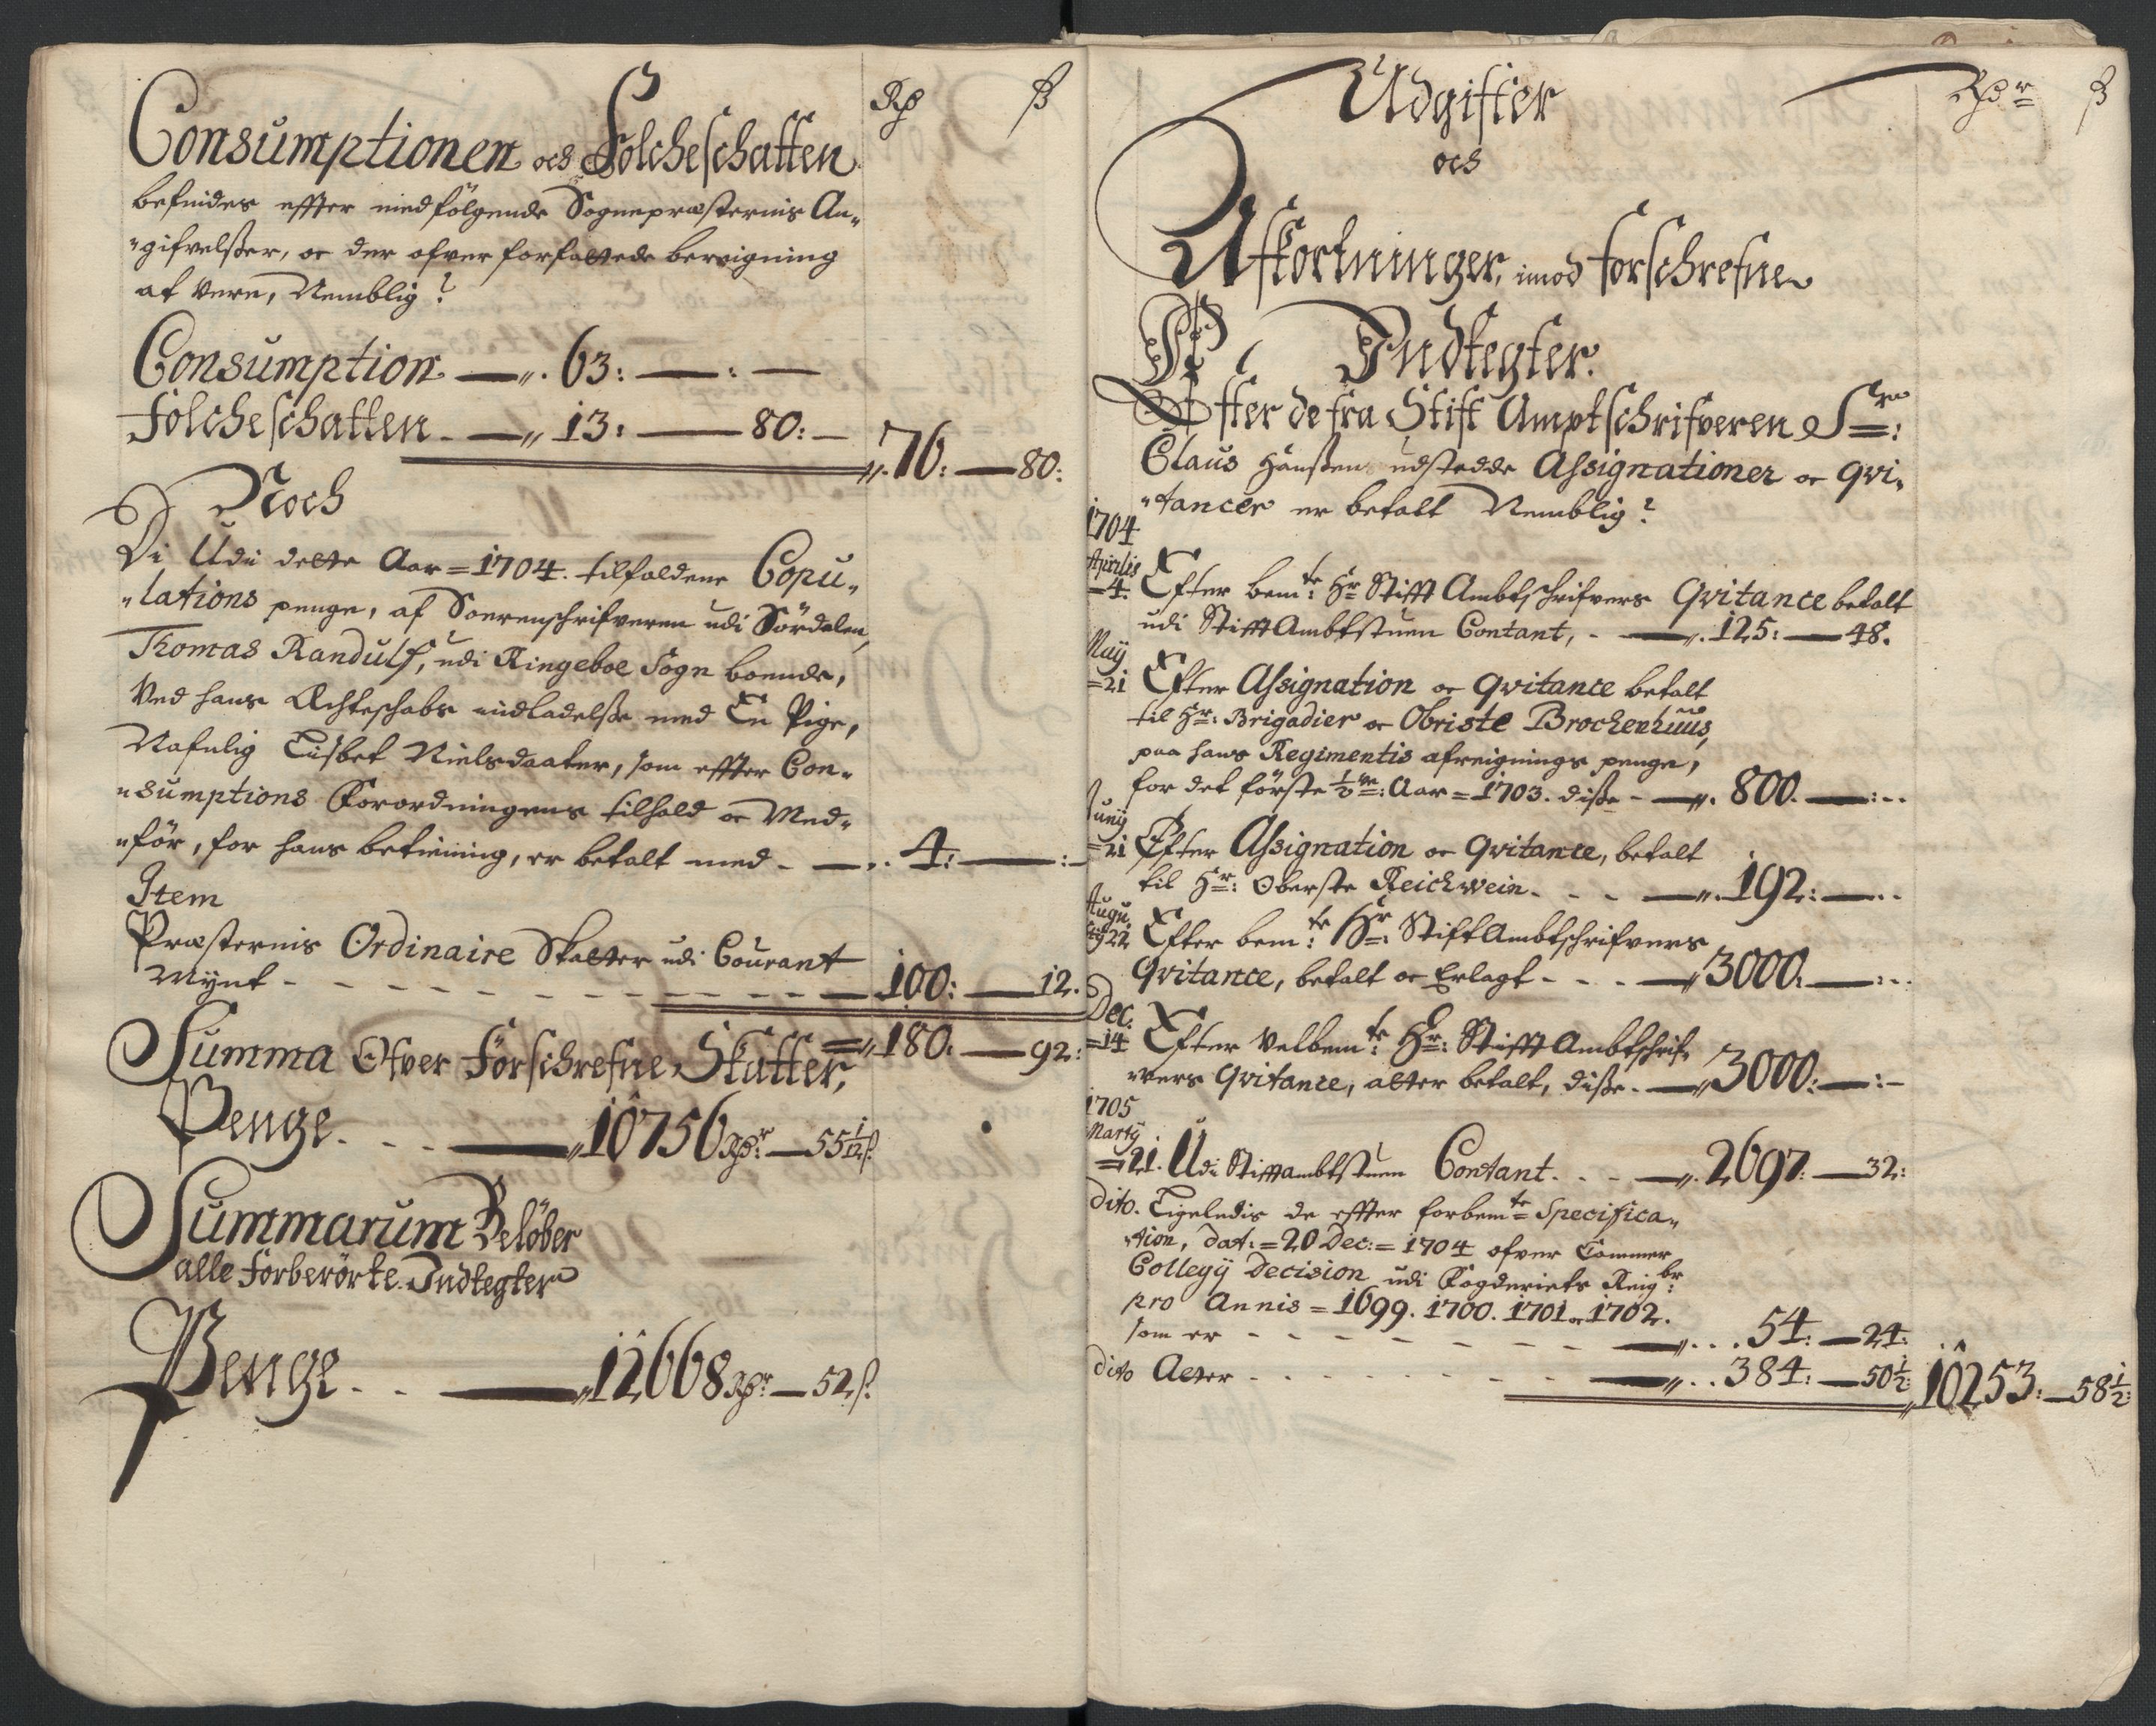 Rd ß
Consumptionen och Folcheschatten
befindes effter medfölgende Sognepræsternis An„
„gifvelßer, oc der ofver forfattede bereigning
at vere, Nemblig?
Consumption — „. 63: — : —
Folcheschatten. — „ 13: — 80: —
„. 76: — 80:
Noch
Di Udi dette Aar = 1704. tilfaldene Copu„
„lations penge, af Soerenschrifveren udi Sördalen,
Thomas Randulf, udi Ringeboe Sogn boende,
Ved hans Achteschabs indladelße med En Pige,
Nafnlig Lisbet Nielsdaater, som effter Con„
„sumptions Forordningens tilhold oc Med„
„för, for hans betiening, er betalt med - — .. 4: — : —
Item
Præsternis Ordinaire Skatter udi Courant
Mÿnt - - - - - - - - - - — 100: — 12.
Summa Ofver Forschrefne Skatter, = „ 180: — 92:
Penge. - - — „10756 Rdr — 55 1/12 ß
Summarum Belöber
alle Forberörte Indtegter
Penge. - - — „12668 Rdr — 52 ß.
Udgifter Rdr ß
och
Afkortninger, imod forschrefne
Indtegter.
Effter de fra Stift Amptschrifveren Sr:
Claus Hanßen udstedde Assignationer oc qvi„
„tancer er betalt Nemblig?
1704
Aprilis
= 4. Efter bemte: Hr Stifft Ambtschrifvers Qvitance betalt
udi Stifft Ambtstuen Contant, - — „. 125: — 48.
Maÿ
= 21 Efter Assignation oc qvitance betalt
til Hr: Brigadier oc Obriste Brochenhuus,
paa hans Regimentis afreignings penge,
for det förste 1/2 : Aar = 1703. diße - — „. 800. — : ..
Junÿ
= 21 Efter Assignation oc qvitance, betalt
til Hr: Oberste Reichwein. - - — „. 192: — ..
Augu.
22 Efter bemte: Hr: Stift Ambtschrifvers
qvitance, betalt oc Erlagt - - - — „3000: — : ..
Dec.
= 14 Efter Velbemte: Hr: Stifft Ambtschrif„
„vers qvitance, atter betalt, diße. — „3000: — : —
1705
Martÿ
= 21. Udi Stifftambtstuen Contant. - - — „. 2697: — 32:
Dito. Ligeledis de effter forbemte Specifica„
„tion, dat: = 20 Dec: = 1704 ofver Cammer
Collegÿ Decision udi Fogderiets Reigbr:
pro Annis = 1699. 1700. 1701 oc 1702.
som er - - - - - - - — „. . . 54: — 24:
dito Atter - - - - - - - — „. . 384: — 50 1/2: „10253: — 58 1/2: